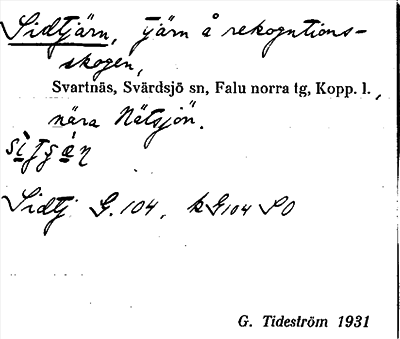 Sidtjärn, tjärn å rekogntions-
skogen,
Svartnäs, Svärdsjö sn, Falu norra tg, Kopp. l.,
nära Nätsjön.
Sidtj G.104, k G104 SO
G. Tideström 1931